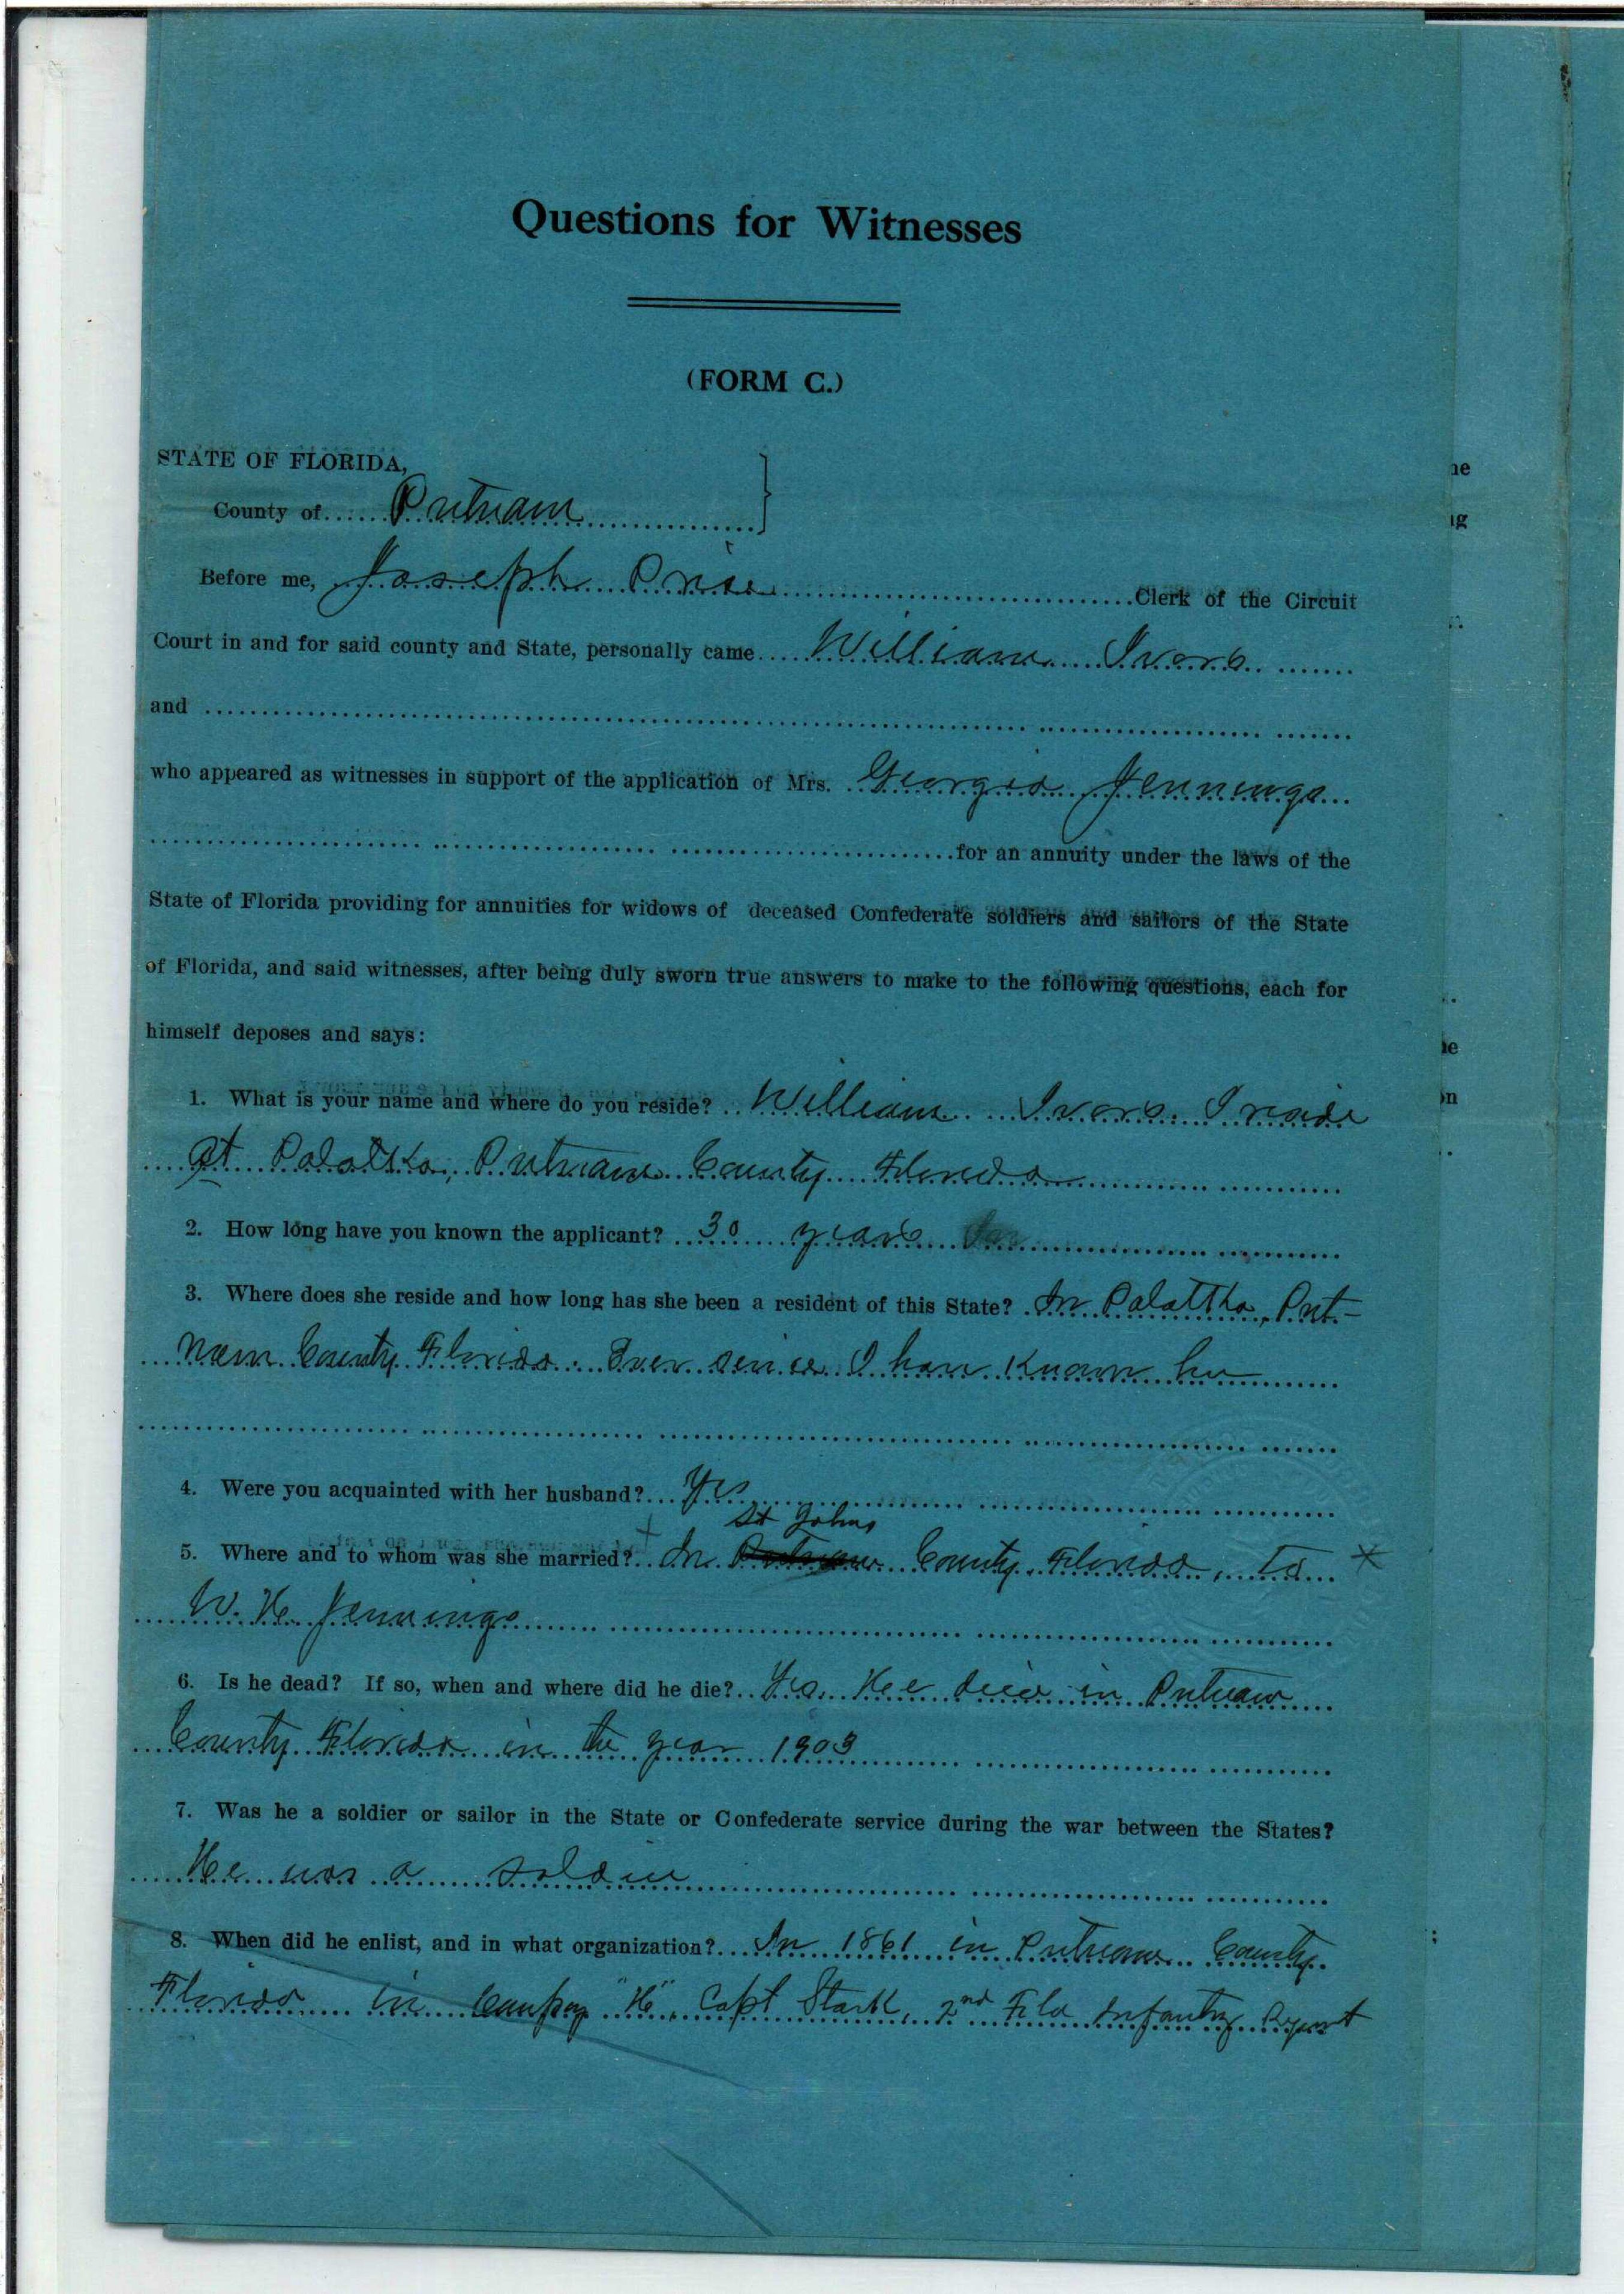 Questions for Witnesses
(FORM C.)
STATE OF FLORIDA,
County of Putnam
Before me, Joseph Price Clerk of the Circuit
Court in and for said county and State, personally came William Ivers
and
who appeared as witnesses in support of the application of Mrs. Georgia Jennings
for an annuity under the laws of the
State of Florida providing for annuities for widows of deceased Confederate soldiers and sailors of the State
of Florida, and said witnesses, after being duly sworn true answers to make to the following questions, each for
himself deposes and says:
1. What is your name and where do you reside? William Ivers. I reside
at Palatka, Putnam County Florida
2. How long have you known the applicant? 30 years
3. Where does she reside and how long has she been a resident of this State? In Palattka, Put-
nam County Florida. Ever since I have known her
4. Were you acquainted with her husband? Yes
St Johns
5. Where and to whom was she married? In Putnam County, Florida, to
W. H. Jennings
6. Is he dead? If so, when and where did he die? Yes. He died in Putnam
County Florida in the year 1903
7. Was he a soldier or sailor in the State or Confederate service during the war between the States?
He was a soldier
8. When did he enlist, and in what organization? In 1861 in Putnam County
Florida in Company "H", Capt Stark, 2nd Fla Infantry Regmt